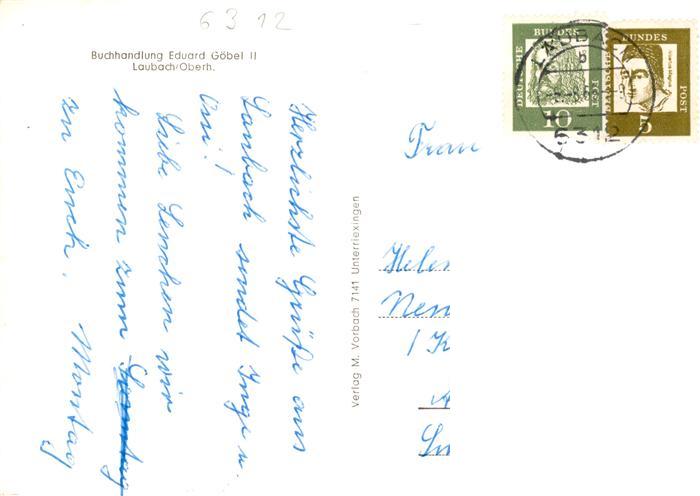 6312
Buchhandlung Eduard Göbel II
Laubach/Oberh.
Herzlichste Grüße aus
Laubach sendet Inge u.
Omi!
Liebe Lenchen wir
kommen zum Samstag
zu Euch. Montag
Verlag M. Vorbach 7141 Unterriexingen
DEUTSCHE BUNDES POST
10
DEUTSCHE BUNDES POST
5
LAUBACH
6312
Frau
Helen